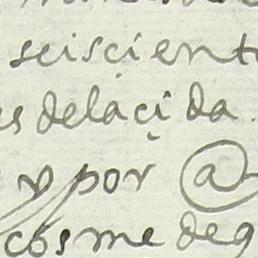 seisçient
es delaçida
y por @
cosme deg